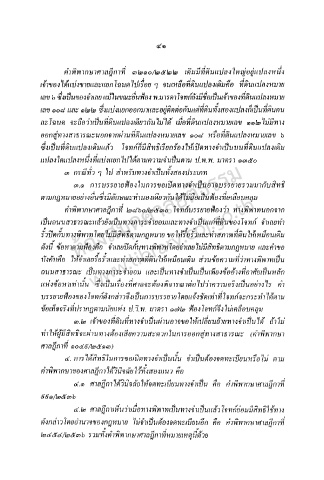 ๔๑
คำพิพากษาศาลฎีกาที่ ๓๒๑๐/๒๕๒๒ เดิมมีที่ดินแปลงใหญ่อยู่แปลงหนึ่ง
เจ้าของได้แบ่งขายและแยกโฉนดไปเรื่อย ๆ จนเหลือที่ดินแปลงเดิมคือ ที่ดินแปลงหมาย
เลข ๖ ซึ่งเป็นของจำเลย แม้ในขณะยื่นฟ้อง พ.มารดาโจทก์ยังมีชื่อเป็นเจ้าของที่ดินแปลงหมาย
เลข ๑๐๘ และ ๑๒๒ ซึ่งแบ่งแยกออกมาและอยู่ติดต่อกันแต่ที่ดินทั้งสองแปลงก็เป็นที่ดินคน
ละโฉนด จะถือว่าเป็นที่ดินแปลงเดียวกันไม่ได้ เมื่อที่ดินแปลงหมายเลข ๑๒๒ ไม่มีทาง
ออกสู่ทางสาธารณะนอกจากผ่านที่ดินแปลงหมายเลข ๑๐๘ หรือที่ดินแปลงหมายเลข ๖
ซึ่งเป็นที่ดินแปลงเดิมแล้ว โจทก์ก็มีสิทธิเรียกร้องให้เปิดทางจำเป็นบนที่ดินแปลงเดิม
แปลงใดแปลงหนึ่งที่แบ่งแยกไปได้ตามความจำเป็นตาม ป.พ.พ. มาตรา ๑๓๕๐
๓. กรณีทั่ว ๆ ไป สำหรับทางจำเป็นทั้งสองประเภท
๓.๑ การบรรยายฟ้องในการขอเปิดทางจำเป็นอาจบรรยายรวมมากับสิทธิ
ตามกฎหมายอย่างอื่นซึ่งมีลักษณะทำนองเดียวกันได้ไม่ถือเป็นฟ้องที่เคลือบคลุม
คำพิพากษาศาลฎีกาที่ โจทก์บรรยายฟ้องว่า ทางพิพาทนอกจาก
เป็นถนนสาธารณะแล้วยังเป็นทางภาระจำยอมและทางจำเป็นแก่ที่ดินของโจทก์ จำเลยทำ
รั้วปิดกั้นทางพิพาทโดยไม่มีสิทธิตามกฎหมาย ขอให้รื้อรั้วและทำสภาพที่ดินให้เหมือนเดิม
ดังนี้ ข้อหาตามฟ้องคือ จำเลยปิดกั้นทางพิพาทโดยจำเลยไม่มีสิทธิตามกฎหมาย และคำขอ
บังคับคือ ให้จำเลยรื้อรั้วและทำสภาพที่ดินให้เหมือนเดิม ส่วนข้อความที่ว่าทางพิพาทเป็น
ถนนสาธารณะ เป็นทางภาระจำยอม และเป็นทางจำเป็นเป็นเพียงข้ออ้างที่อาศัยเป็นหลัก
แห่งข้อหาเท่านั้น ซึ่งเป็นเรื่องที่ศาลจะต้องพิจารณาต่อไปว่าความจริงเป็นอย่างไร คำ
บรรยายฟ้องของโจทก์ดังกล่าวจึงเป็นการบรรยายโดยแจ้งชัดเท่าที่โจทก์จะกระทำได้ตาม
ข้อเท็จจริงที่ปรากฏตามนัยแห่ง ป.วิ.พ. มาตรา ๑๗๒ ฟ้องโจทก์จึงไม่เคลือบคลุม
๓.๒ เจ้าของที่ดินที่ทางจำเป็นผ่านอาจขอให้เปลี่ยนย้ายทางจำเป็นได้ ถ้าไม่
ทำให้ผู้มีสิทธิจะผ่านทางต้องเสียความสะดวกในการออกสู่ทางสาธารณะ (คำพิพากษา
ศาลฎีกาที่
๔. การได้สิทธิในการขอเปิดทางจำเป็นนั้น จำเป็นต้องจดทะเบียนหรือไม่ ตาม
คำพิพากษาของศาลฎีกาได้วินิจฉัยไว้ทั้งสองแนว คือ
๔.๑ ศาลฎีกาได้วินิจฉัยให้จดทะเบียนทางจำเป็น คือ คำพิพากษาศาลฎีกาที่
๔.๒ ศาลฎีกาเห็นว่าเมื่อทางพิพาทเป็นทางจำเป็นแล้วโจทก์ย่อมมีสิทธิใช้ทาง
ดังกล่าวโดยอำนาจของกฎหมาย ไม่จำเป็นต้องจดทะเบียนอีก คือ คำพิพากษาศาลฎีกาที่
รวมทั้งคำพิพากษาศาลฎีกาที่หมายเหตุนี้ด้วย